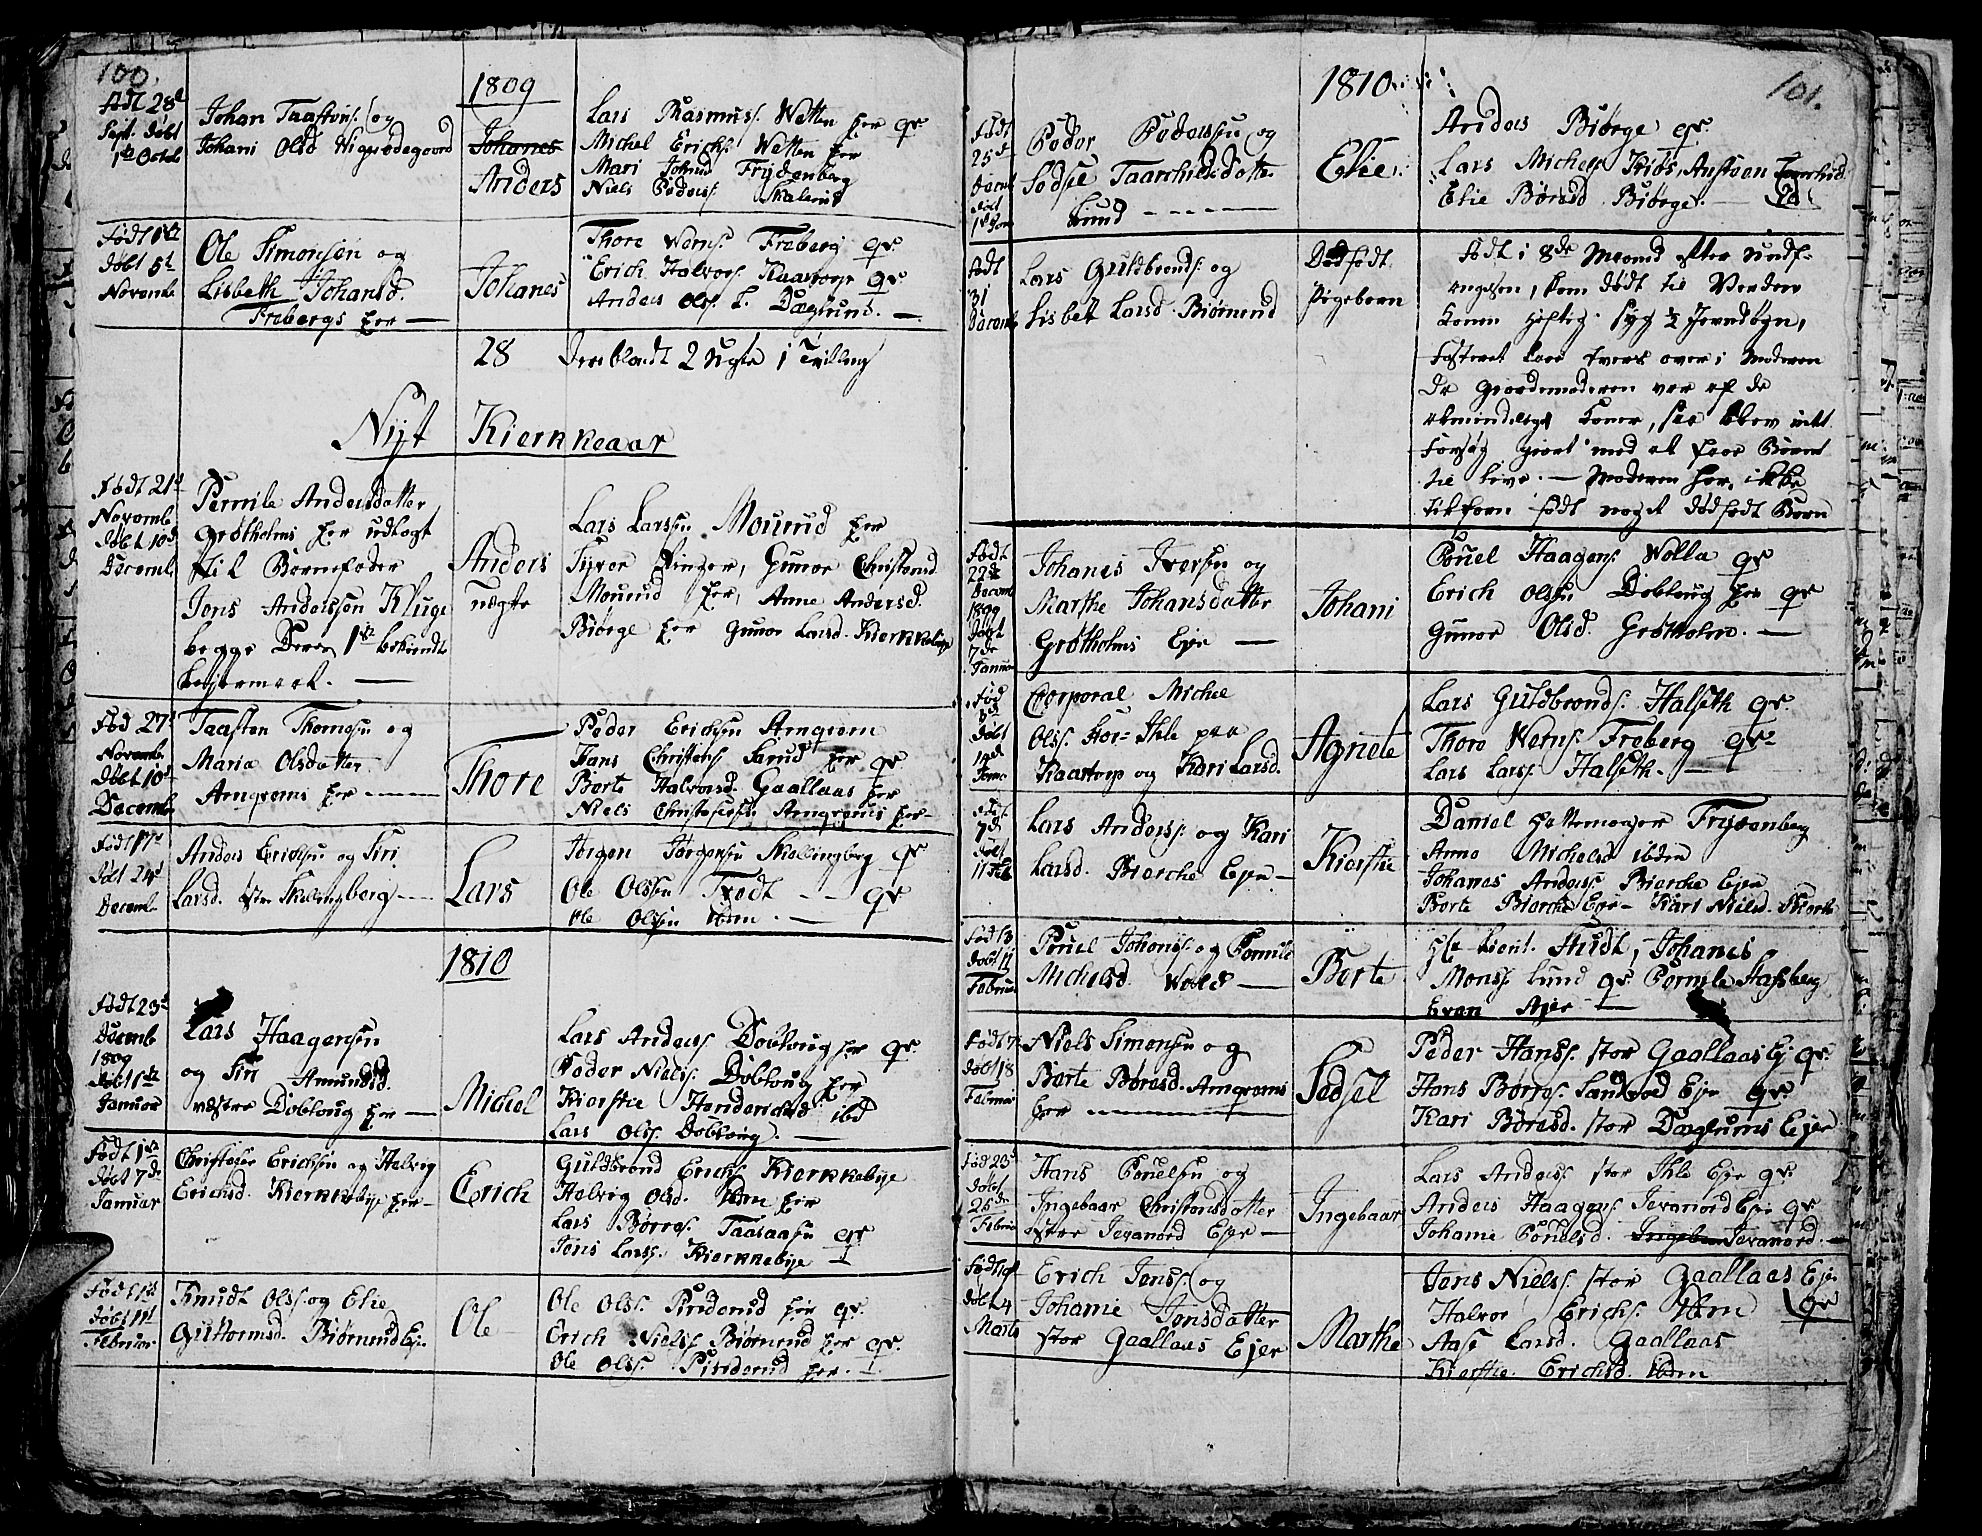 100.
1809
Født 28d
Sept. døbt
1ste Octob
Johan Taastens. og
Johani Olsd Wignesødegaard
Johanes
Anders
Lars Rasmuss. Wetten Eer qr
Michel Erichs. Wetten Eer
Mari Johnsd Frydenberg
Niels Peders.
Født 1ste
døbt 5t
Novemb
Ole Simonsen og
Lisbeth Johansd.
Frebergs Eer —
Johanes
Thore Werns. Freberg qr.
Erich Halvors. Kaastorp qr
Anders Ols. L. Dæglund. —
28 Dereblandt 2 Uægte 1 Tvilling
Nijt Kierkeaar
Født 21d
Novemb
døbt 10d
Decemb
Pernile Andersdatter
Grøtholms Eer udlagt
til Barnefader
Jens Anderssen Kluge
begge Deres 1ste bekiendte
Leijermaal. —
Anders
uægte
Lars Larssen Mouud Eer
Syver Ringer, Gunor Christensd
Mouud Eer, Anne Andersd.
Biørge Eer Gunor Larsd. Kierkebye
Fød 27d
Novemb
døbt 10d
Decemb
Taasten Thomesen og
Maria Olsdatter
Amqverns Eer —
Thore
Peder Erichsen Amqvern
Hans Christens. Eer qr
Berte Halvorsd. Gaallaas Eer
Niels Christophers. Amqverns Eer —
Født 17d
døbt 24d
Decemb
Anders Erichsen og Siri
Larsd. Skallingberg —
Lars
Jørgen Jørgensen Skallingberg qr
Ole Olssen Trodt — qr
Ole Olssen Ibdm. —
1810
Født 23d
Decemb
1809
døbt 1ste
Januar
Lars Haagensen
og Siri Amundsd.
vestre Dobloug Eer —
Michel
Lars Anders. Dobloug Eer qr.
Peder Niels. Dobloug Eer
Kierstie Henderichsd. ibd
Lars Ols. Dobloug. —
Født 1ste
døbt 7de
Januar
Christopher Erichsen og Halvig
Erichsd. Kierkebye Eer —
Erich
Guldbrand Erichs. Kierkkebye
Halvig Olsd. Ibdm Eer
Lars Børres. qr
Jens Larss. Kierkkebye
Født 1ste
døbt 11t
Februar
Knudt Olss. og Elie
Guttormsd. Biørnerud Ej.
Ole
Ole Olss. Pinderud Eer qr.
Erich Nielss. Biørnerud Eer qr.
Ole Olss. Pinderud Eer. —
101.
1810
Født
25de
Decemb
døbt
1ste Jan
Peder Pederssen og
Sedsel Taarchildsdatter
Lund —
Elie
Anders Biørge qr.
Lars Michels. Friis, Austeen
Elie Børresd Biørge. —
Født
31
Decemb
Lars Guldbrands. og
Lisbet Larsd. Biørnerud
Dødfødt
Pigebarn
Født i 8de Maaned efter Undf-
angelsen, kom dødt til Verden
Konen heftig syg ½ Jevndøgn,
Fosteret laae tvers over i Moderen
Da Giordemoderen var af de
almindelige Koner, saa blev intet
Forsøg giort med at faae Barnet
til live. — Moderen har ikke
tilforn født noget dødfødt Barn
Født
22de
Decemb
1809
døbt
7de
Januar
Johanes Iversen og
Marthe Johansdatter
Grøtholms Ejer —
Johani
Pouel Haagens. Wolla qr
Erich Olssen Dobloug Eer qr
Gunor Olsd. Grøtholm. —
Fød
døbt
14d
Janu
Corporal Michel
Olss. Ihle paa
Kaastorp og Kari Larsd.
Agnete
Lars Guldbrands. Halseth qr.
Thore Werns. Freberg qr.
Lars Larss. Halseth. —
Født
7d
døbt
11 Feb
Lars Anders. og Kari
Larsd. Bierche Ejer —
Kierstie
Daniel Hattemager Frydenberg
Anne Michelsd ibdm
Johanes Anders. Bierche Ejer
Berte Bierche Ejer — Kari Nielsd.
Født 3
døbt 11
Februar
Pouel Johans. og Pernile
Michelsd. Wold —
Berte
Hr Lieut. Studt, Johanes
Mons. Lund qr. Pernile Stafsberg
Even Ajer —
Født 7
døbt 18
Februar
Niels Simonsen og
Berte Børresd. Amqverns
Eer —
Sedsel
Peder Hanss. stor Gaallaas Ej qr.
Hans Børres. Sandrod Ejer qr.
Kari Børresd. stor Dæglums Ejer
Fød 23d
døbt
25de
Februar
Hans Pouelsen og
Ingebaar Christensdatter
østre Jevanord Ejer —
Ingebaar
Lars Anderss. stor Ihle Ejer qr.
Anders Haagens. Jevanord Ejer qr
Johanne Pouelsd. Jevanord. —
Født
døbt 4
Marts
Erich Jenss. og
Johanne Jensdatter
stor Gaallaas Ejer
Marthe
Jens Nielss. stor Gaallaas Ejer
Halvor Erichs. Ibdm qr
Aase Larsd. Gaallaas
Kierstie Erichsd. ibdm